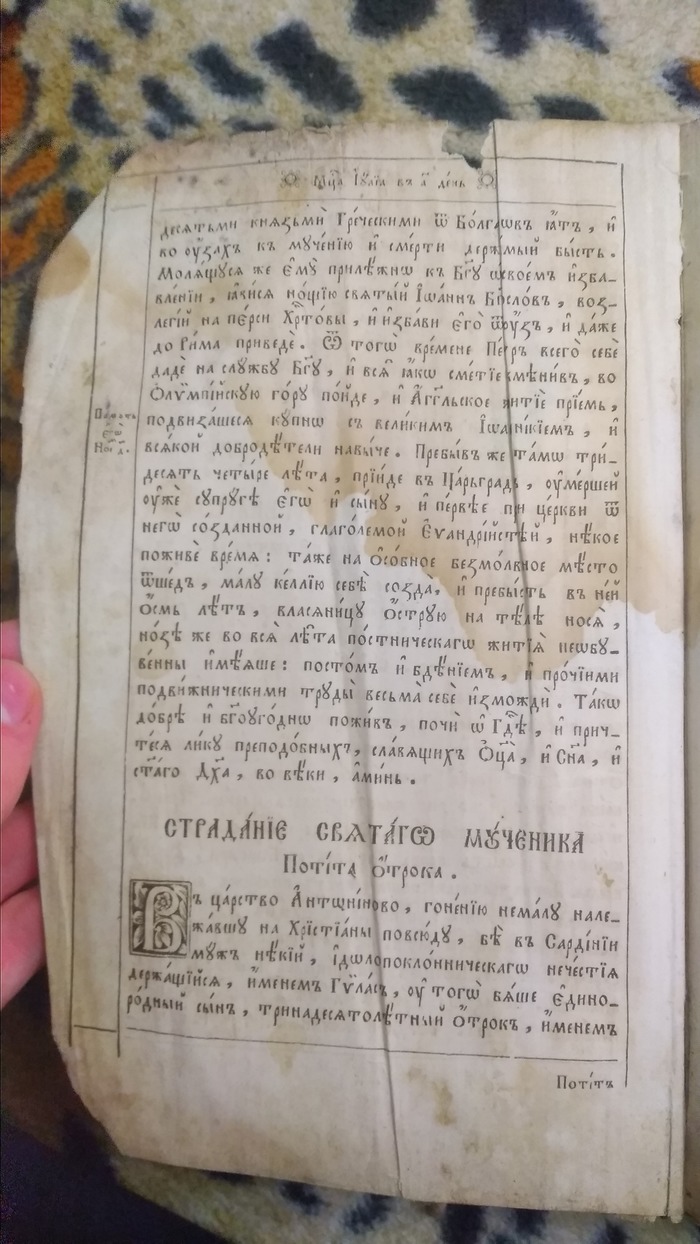 Мц҃а І҆у́лїа въ а҃ де́нь
десятьмѝ кня́зьми Гре́ческими ѿ Бо́лгаѡвъ ꙗ҆́тъ , и҆
во ᲂу҆́захъ къ муче́нїю и҆ сме́рти держи́мый бы́сть.
Моля́щуся же є҆мꙋ̀ прилѣ́жнѡ къ Бг҃ꙋ ѡ҆свое́мъ и҆зба-
вле́нїи , ꙗ҆ви́ся но́щїю святы́й І҆ѡа́ннъ Бг҃осло́въ , воз-
легі́й на пе́рси Хрⷭ҇то́вы , и҆ и҆зба́ви є҆го̀ ѿᲂу҆́зъ , и҆ да́же
до Ри́ма приведѐ . Ѿ тогѡ̀ вре́мене Пе́тръ всего̀ себѐ
дадѐ на слу́жбу Бг҃ꙋ , и҆ вся̑ ꙗ҆́кѡ смѣ́тїе вмѣни́въ , во
Ѻ҆лѷмпі́йскую го́ру по́йде , и҆ А҆́гг҃льское житїѐ прїе́мь ,
подвиза́шеся ку́пнѡ съ вели́кимъ І҆ѡанні́кїемъ , и҆
вся́кой добродѣ́тели навы́че . Пребы́въ же та́мѡ три-
десять четы́ре лѣ́та , прїи́де въ Ца́рьградъ , ᲂу҆ме́ршей
ᲂу҆жѐ супру́гѣ є҆гѡ̀ и҆ сы́ну , и҆ пе́рвѣе при це́ркви ѿ
негѡ̀ со́зданной , глаго́лемой Є҆ѵандрі́йстѣй , нѣ́кое
поживѐ вре́мя : та́же на ѻ҆со́бное безмо́лвное мѣ́сто
ѿше́дъ , ма́лу ке́ллїю себѣ̀ созда̀ , и҆ пребы́сть въ не́й
ѻ҆́смь лѣ́тъ , власяни́цу ѻ҆́струю на тѣ́лѣ нося̀ ,
но́зѣ же во вся̑ лѣ̑та по́стническагѡ житїя̀ неѡбу-
ве́нны и҆мѣ́яше : посто́мъ и҆ бдѣ́нїемъ , и҆ про́чїими
подви́жническими труды̀ весьма̀ себѐ и҆змождѝ . Та́кѡ
до́брѣ и҆ бг҃оуго́днѡ пожи́въ , почѝ ѡ҆ Гдⷭ҇ѣ , и҆ прич-
те́ся ли́ку преподо́бныхъ , сла́вящихъ Ѻ҆ц҃а̀ , и҆ Сн҃а , и҆
ст҃а́го Дх҃а , во вѣ́ки , а҆ми́нь .
Па́мять
є҆гѡ̀
Ное҃ д҃.
СТРАДА́НЇЕ СВЯТА́ГѠ МꙊ́ЧЕНИКА
Поті́та ѻ҆́трока .
Въ ца́рство А҆нтѡни́ново , гоне́нїю нема́лу нале-
жа́вшу на Хрїстїа́ны повсю́ду , бѣ̀ въ Сарді́нїи
му́жъ нѣ́кїй , і҆дѡлопокло́нническагѡ нече́стїя
держа́щїйся , и҆́менемъ Гѷла́съ , ᲂу҆ тогѡ̀ бя́ше є҆дино-
ро́дный сы́нъ , тринадесятолѣ́тный ѻ҆́трокъ , и҆́менемъ
Поті́тъ